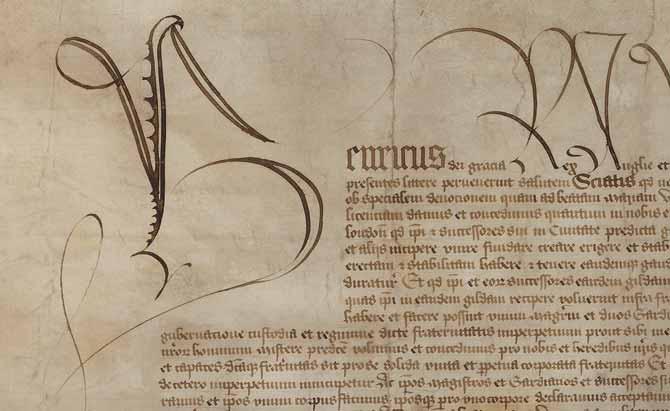 Henricus dei gracia Rex Anglie et
presentes littere pervenerint salutem Sciatis qd
ob specialem devocionem quam ad beatam mariam V
licenciam damus et concedimus quantum in nobis e
london qd ipi & successores sui in Civitate predicta
et alijs incipere unire fundare creare erigere et stab
erectam & stabilitam habere & tenere eandemque gaud
duratur Et qd ipi et eor successores eiusdem gildam
quas ipi in eandem gildam recipere voluerint
habere et facere possint unum Magrm et duos Gardi
gubernacione custodia et regimine dicte fraternitatis imperpetuum prout sibi
hominum mistere predce volumus et concedimus pro nobis et heredibus nris
et capaces dcaque fraternitas sit pro se solida unita et ppetua corporata fraternitas Et
decetero imperpetuum nuncupetur Ac ipos magistros et Gardianos et successores
et ipos unum corpus facimus iposque pro uno corpore declaravimus acceptam